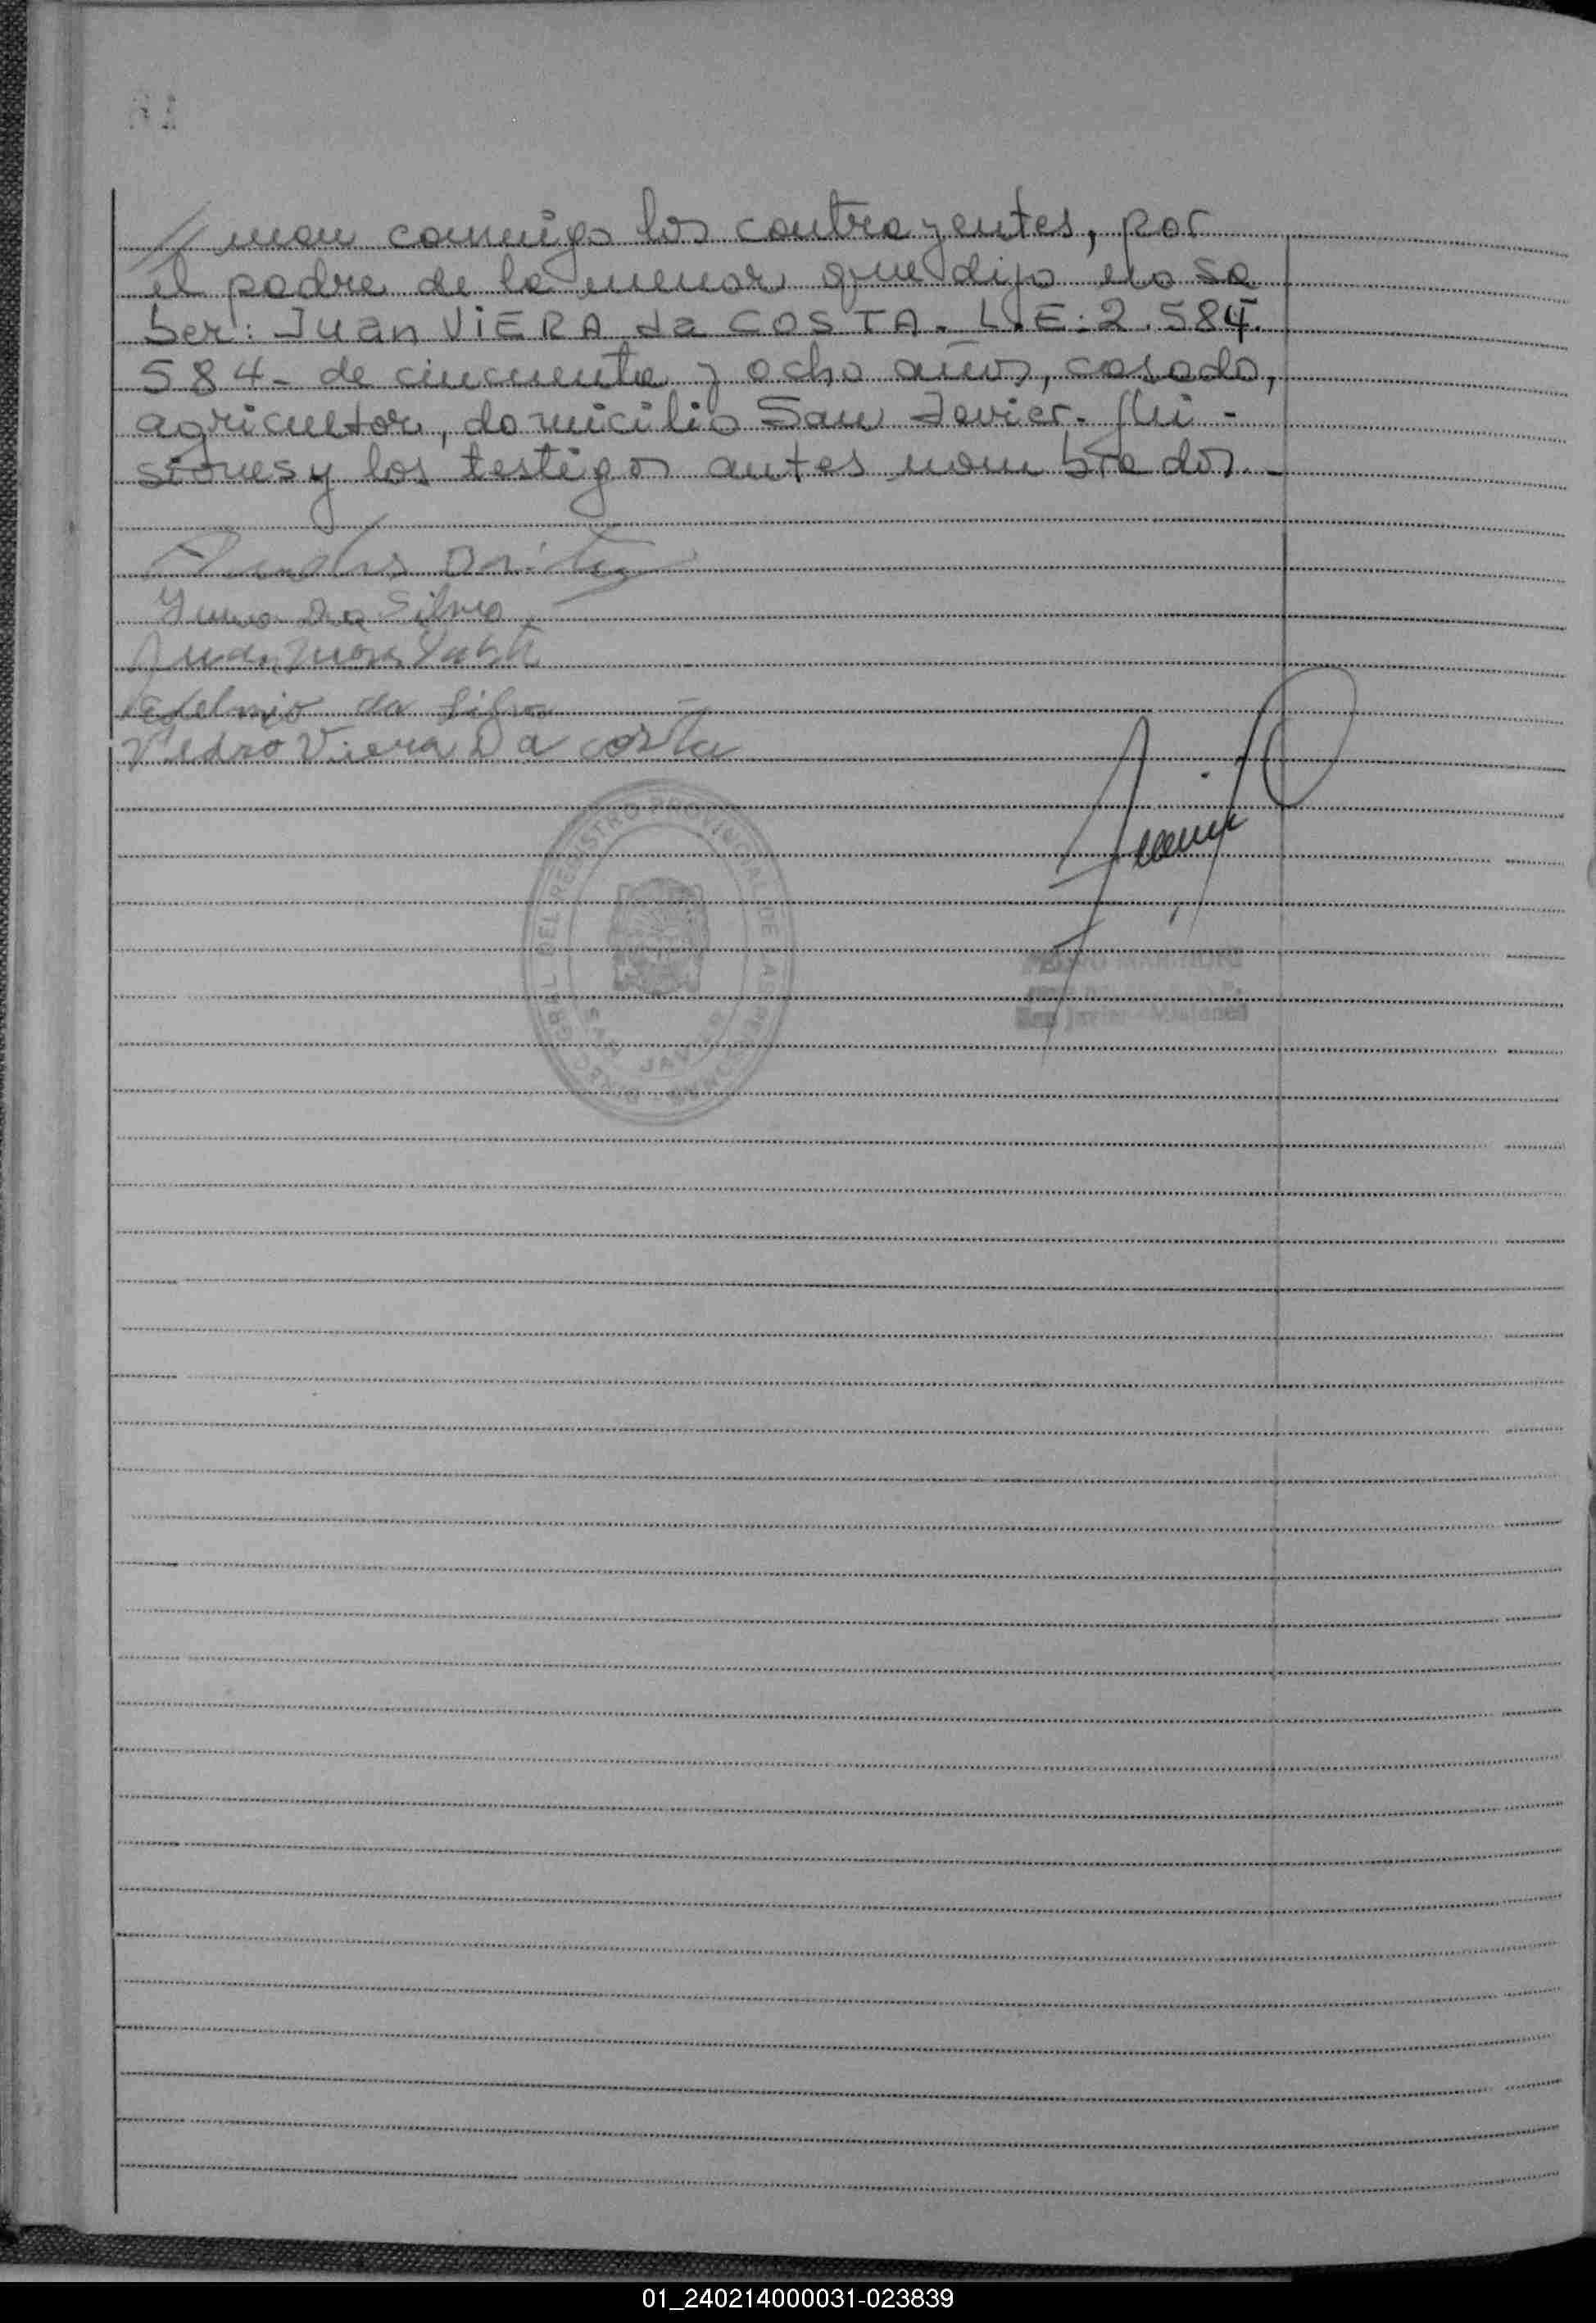 // man conmigo los contrayentes, por
el padre de la menor que dijo no sa
ber: Juan VIERA da COSTA. L.E: 2.584.
584- de cincuenta y ocho años, casado,
agricultor, domicilio San Javier. Mi-
siones y los testigos antes nombrados.-
da Silva
Juan
da Silva
Pedro Viera Da costa
DIRECCION GRAL DEL REGISTRO PROVINCIAL DE LAS PERSONAS
SAN JAVIER
San Javier - Misiones
01_240214000031-023839